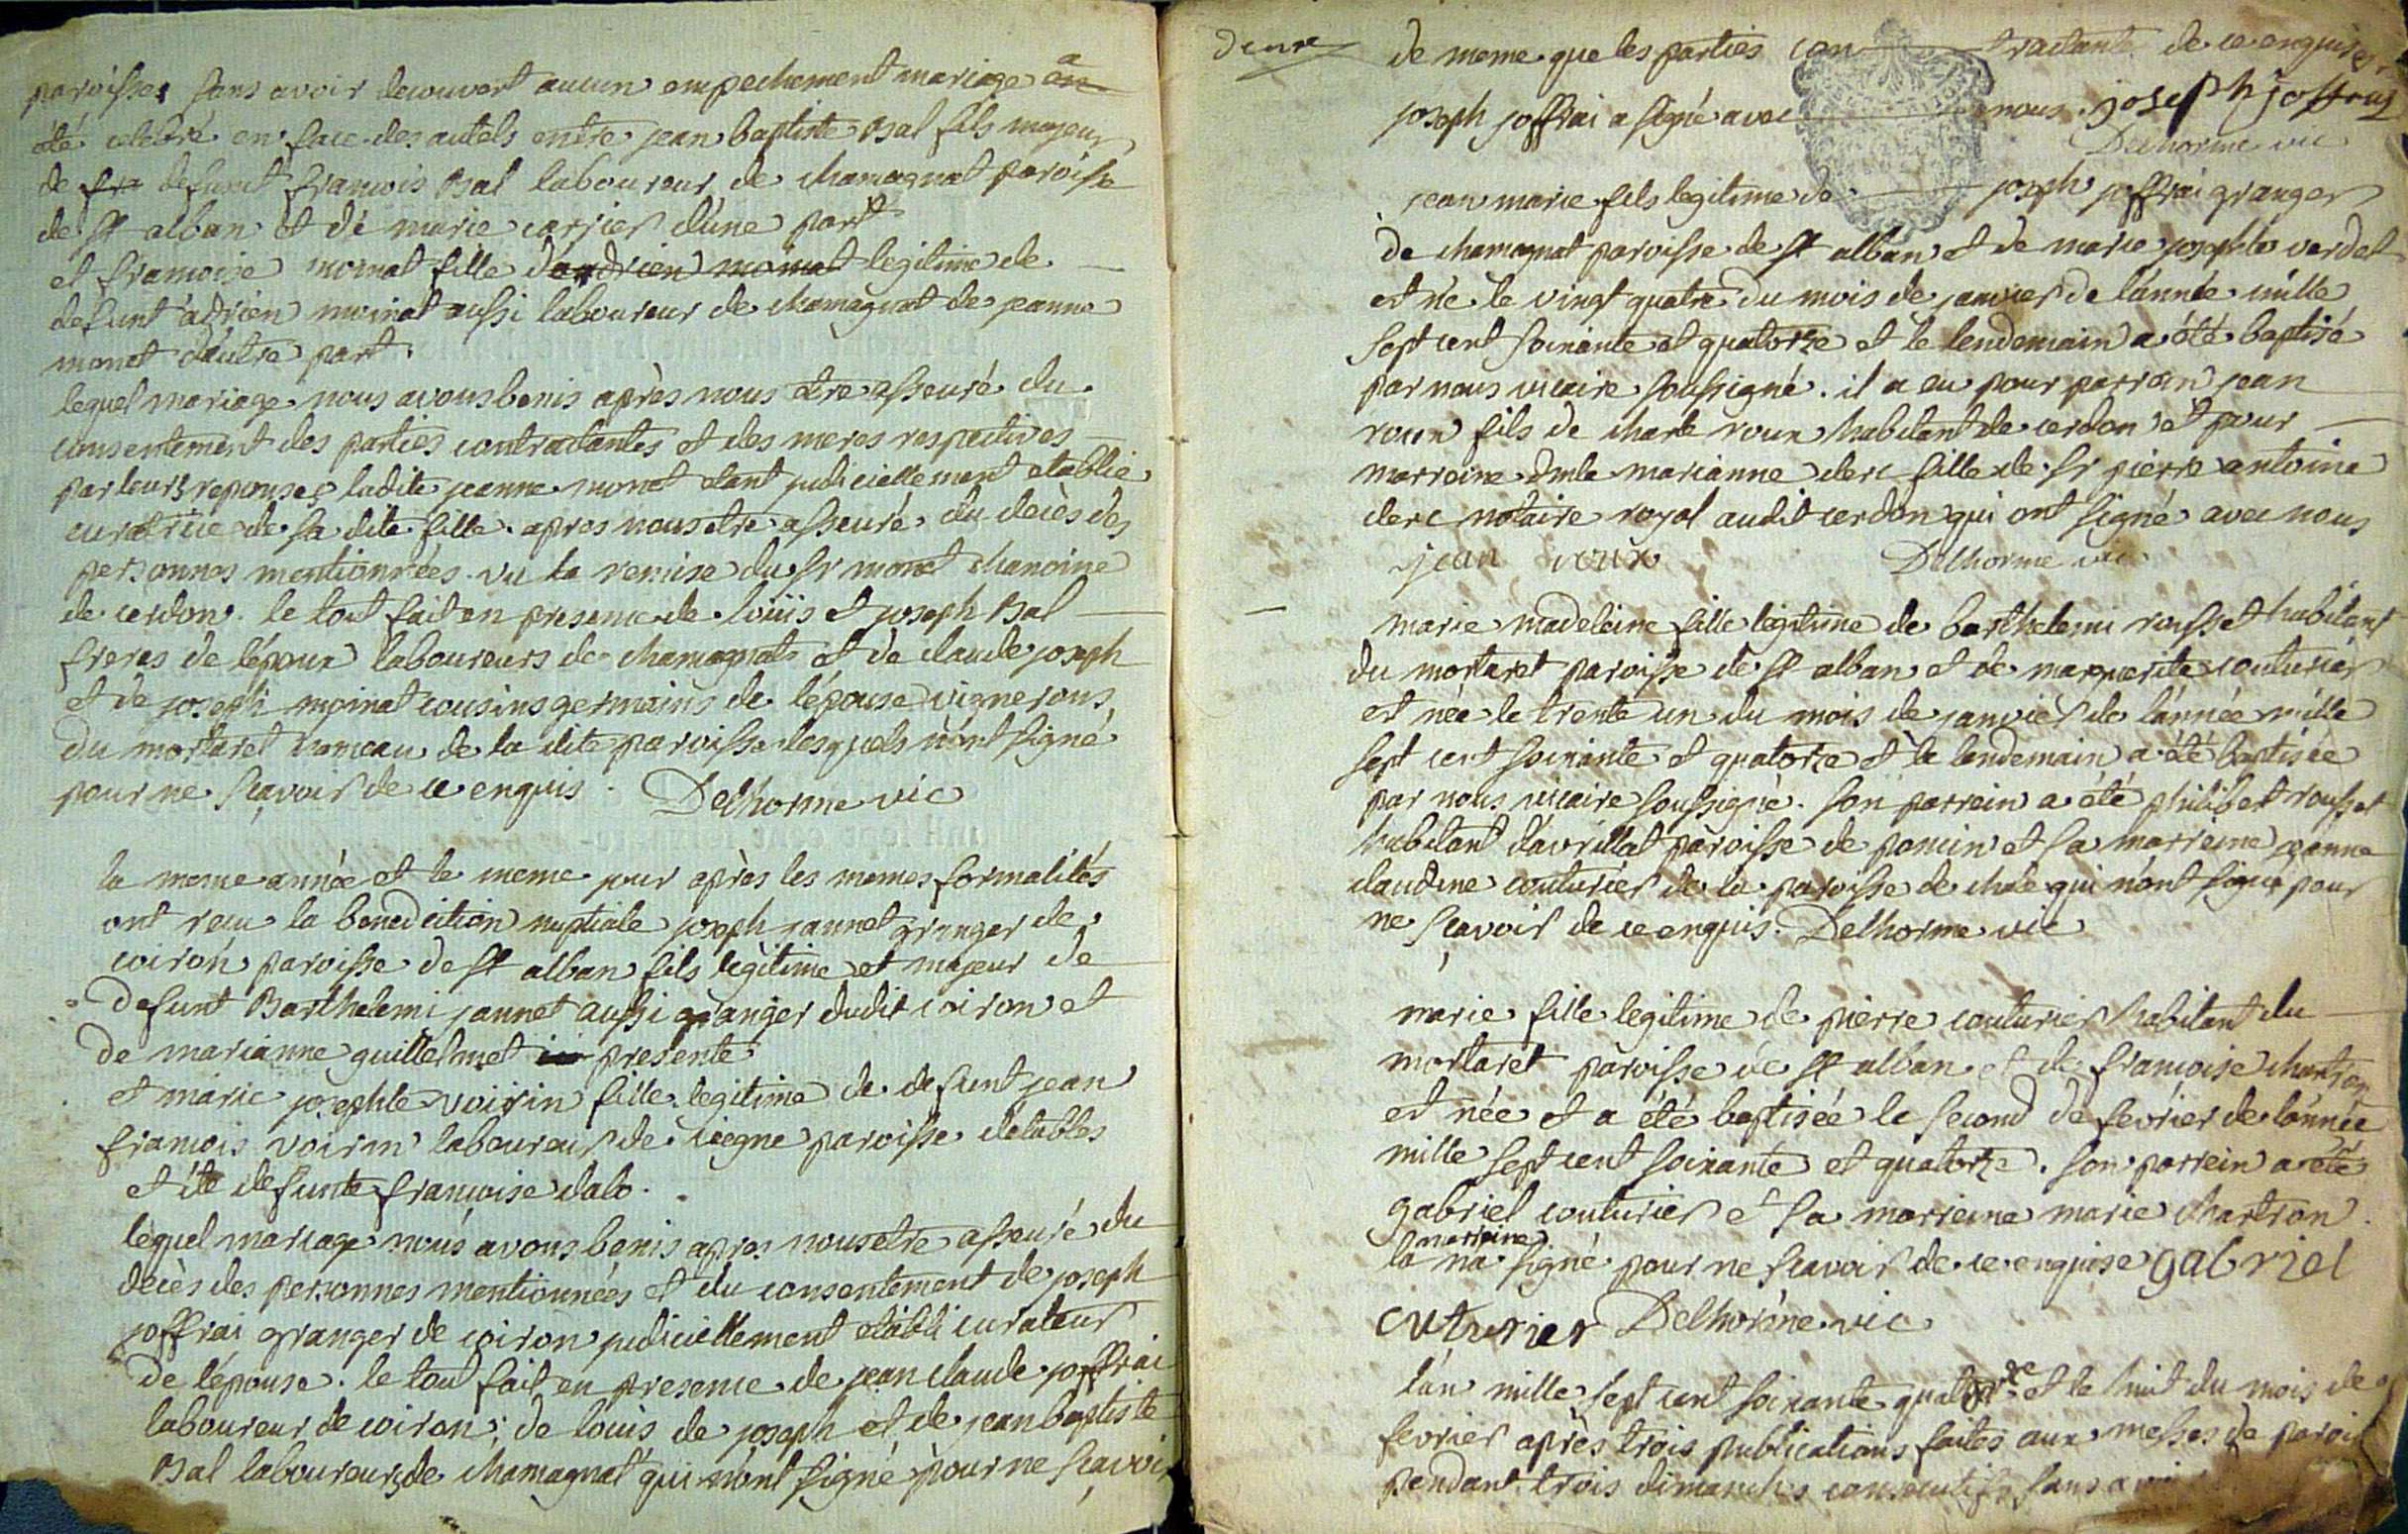 paroisses sans avoir decouvert aucun empechement mariage a
été celebré en face des autels entre jean baptiste Bal fils majeur
de fra defunt francois Bal laboureur de chamagnat paroisse
de st alban et de marie carrier d'une part
et francoise moinat fille d'andrien moinat legitime de
defunt adrien moinat aussi laboureur de chamagnat de jeanne
monet d'autre part.
lequel mariage nous avons benis après nous etre asseuré du
consentement des parties contractantes et des meres respectives
par leurs reponses ladite jeanne monet etant judiciellement etablie
curatrice de sa dite fille. apres nous etre asseuré du decès des
personnes mentionnées. vu la remise du sr monet chanoine
de cerdon. le tout fait en presence de loüis et joseph Bal
freres de l'époux laboureurs de chamagnat et de claude joseph
et de joseph moinat cousins germains de l'épouse vignerons
du mortaret hameau de la dite paroisse lesquels n'ont signé
pour ne sçavoir de ce enquis. Delhorme vic
la meme année et le meme jour après les memes formalités
ont recu la benediction nuptiale joseph jannet granger de
coiron paroisse de st alban fils légitime et majeur de
defunt Barthelemi jannet aussi granger dudit coiron et
de marianne guillermet presente
et marie josephte voirin fille legitime de defunt jean
francois voirin laboureur de ciegne paroisse d'etables
et de defunte francoise dalo.
lequel mariage nous avons benis apres nous etre asseuré du
decès des personnes mentionnées et du consentement de joseph
joffrai granger de coiron judiciellement etabli curateur
de l'épouse. le tout fait en presence de jean claude joffrai
laboureur de coiron; de louis de joseph et de jean baptiste
Bal laboureurs de chamagnat qui n'ont signé pour ne sçavoir
deux
de meme que les parties contractante de ce enquises
joseph joffrai a signé avec nous. joseph joffray
Delhorme vic
jean marie fils legitime de joseph joffrai granger
de chamagnat paroisse de st alban et de marie josephte verdet
est né le vingt quatre du mois de janvier de l'année mille
sept cent soixante et quatorze et le lendemain a été baptisé
par nous vicaire soussigné. il a eu pour parrain jean
roux fils de charle roux habitant de cerdon et pour
marreine dmlle marianne clerc fille de sr pierre antoine
clerc notaire royal audit cerdon qui ont signé avec nous
jean roux Delhorme vic
marie madeleine fille légitime de barthelemi rousset habitant
du mortaret paroisse de st alban et de marguerite couturier
est née le trente un du mois de janvier de l'année mille
sept cent soixante et quatorze et le lendemain a été baptisée
par nous vicaire soussigné. son parrein a été philibert rousset
habitant d'avrillat paroisse de poncin et sa marreine jeanne
claudine couturier de la paroisse de chale qui n'ont signé pour
ne scavoir de ce enquis. Delhorme vic
marie fille legitime de pierre couturier habitant du
mortaret paroisse de st alban et de francoise chartron
est née et a été baptisée le second de fevrier de l'année
mille sept cent soixante et quatorze. son parrein a été
gabriel couturier et sa marreine marie chartron.
la marreine n'a signé pour ne scavoir de ce enquise gabriel
cuturier Delhorme vic
l'an mille sept cent soixante quatorze et le huit du mois de
fevrier après trois publications faites aux messes de parois
pendant trois dimanches consecutifs sans avoi